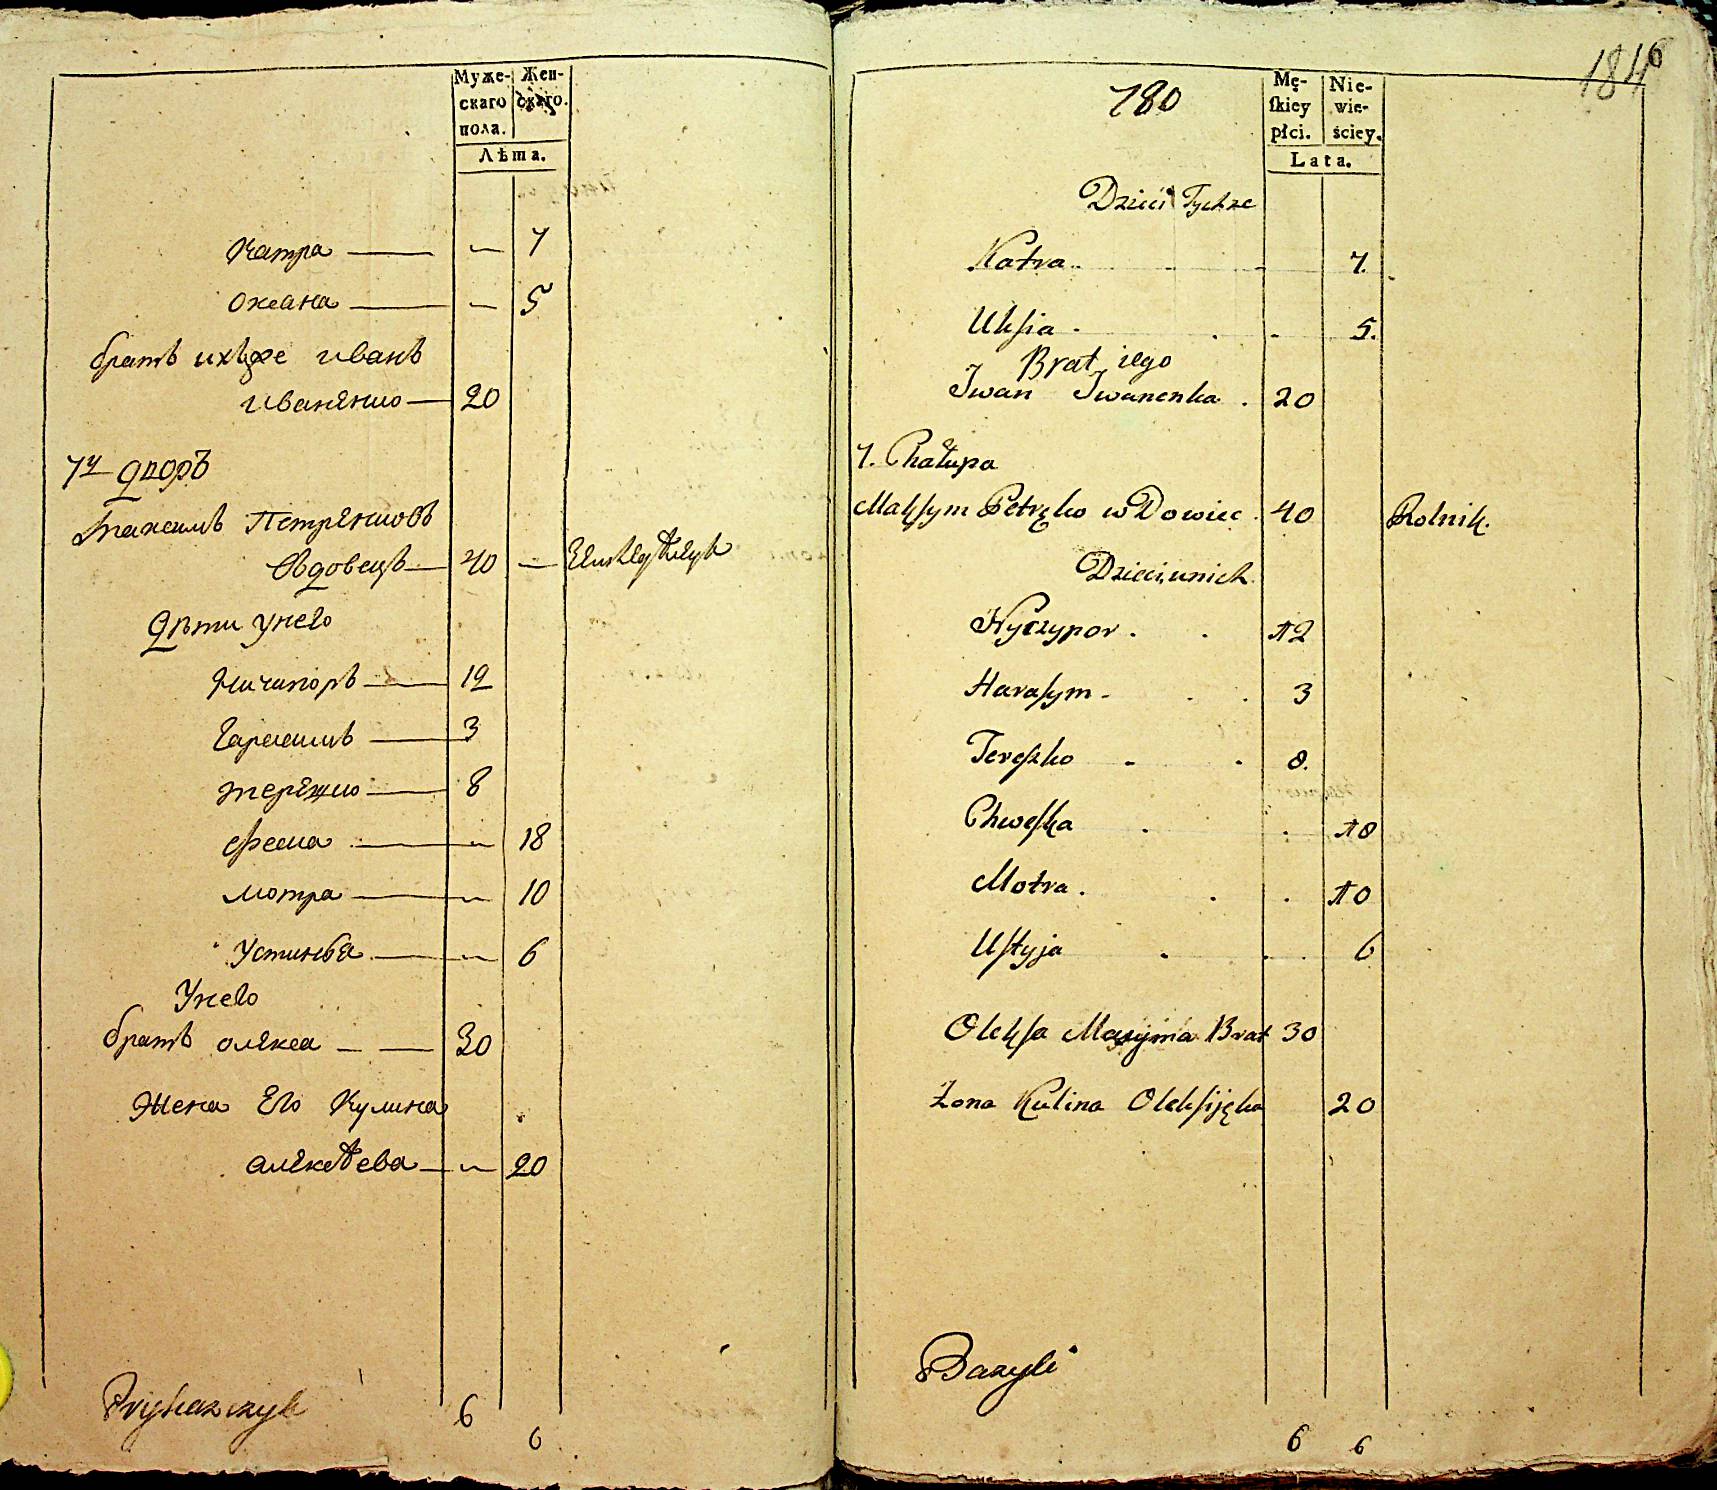 Муже- Жен-
скаго скаго.
пола.
Лѣта.
Катра — — 7
Оксана — — 5
братъ ихъже иванъ
иваненко — 20
7й дворъ
Максимъ Петренковъ
вдовецъ — 40 —
Дѣти унего
Ничипоръ — 12
Гарасимъ — 3
терешко — 8
феска — — 18
мотра — — 10
Устинья — — 6
Унего
братъ олекса — — 30
Жена Его Кулина
алексеева — — 20
Prykazczyk
6
6
1846
180
Mę- Nie-
ſkiey wie-
płci. ściey.
Lata.
Dzieci Tychże
Katra 7.
Ukſia 5.
Brat iego
Iwan Iwanenka 20
7. Chałupa
Makſym Petręko w Dowiec 40 Rolnik.
Dzieci unich
Nyczypor 12
Haraſym 3
Tereſzko 8.
Chweſka 18
Motra 10
Uſtyja 6
Olekſa Maxyma Brat 30
Żona Kulina Olekſijęka 20
Bazyli
6 6